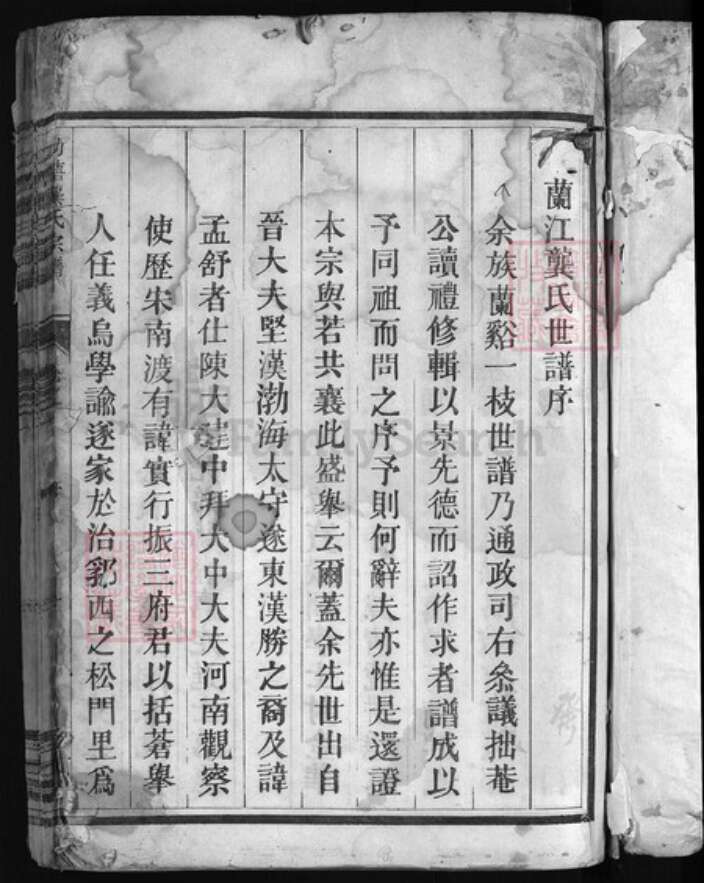 蘭江龔氏世譜序
余族蘭谿一枝世譜乃通政司右叅議拙菴
公讀禮修輯以景先德而詔作求者譜成以
予同祖而問之序予則何辭夫亦惟是還證
本宗與若共襄此盛舉云爾蓋余先世出自
晉大夫堅漢渤海太守遂東漢勝之裔及諱
孟舒者仕陳大建中拜大中大夫河南觀察
使歷宋南渡有諱實行振三府君以括蒼舉
人任義烏學諭遂家於治郛西之松門里爲
龔氏宗譜
FamilySearch